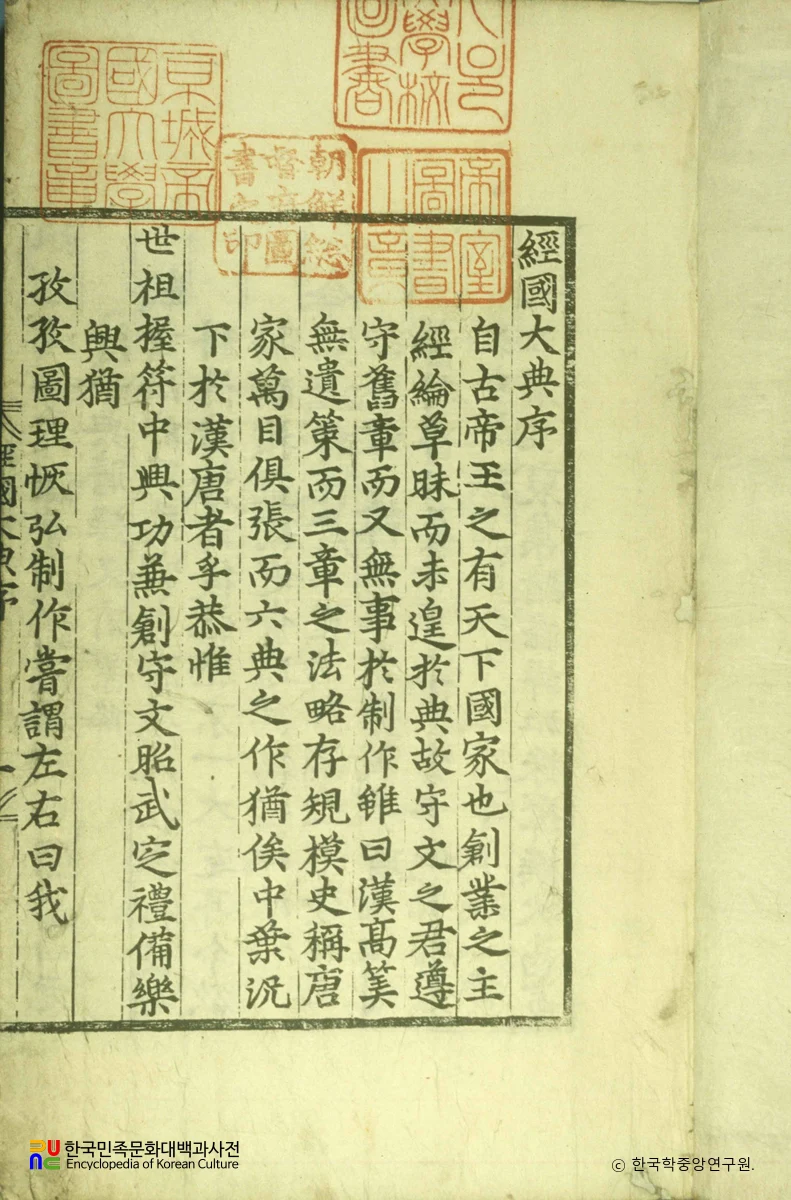 京城帝
國大學
圖書章
朝鮮總
督府圖
書之印
帝室
圖書
之章
學校
圖書
經國大典序
自古帝王之有天下國家也創業之主
經綸草昧而未遑於典故守文之君遵
守舊章而又無事於制作雖曰漢高筭
無遺策而三章之法略存規模史稱唐
家萬目俱張而六典之作猶俟中葉況
下於漢唐者乎恭惟
世祖握符中興功兼創守文昭武定禮備樂
興猶
孜孜圖理恢弘制作嘗謂左右曰我
經國大典序
한국민족문화대백과사전
Encyclopedia of Korean Culture
ⓒ 한국학중앙연구원.